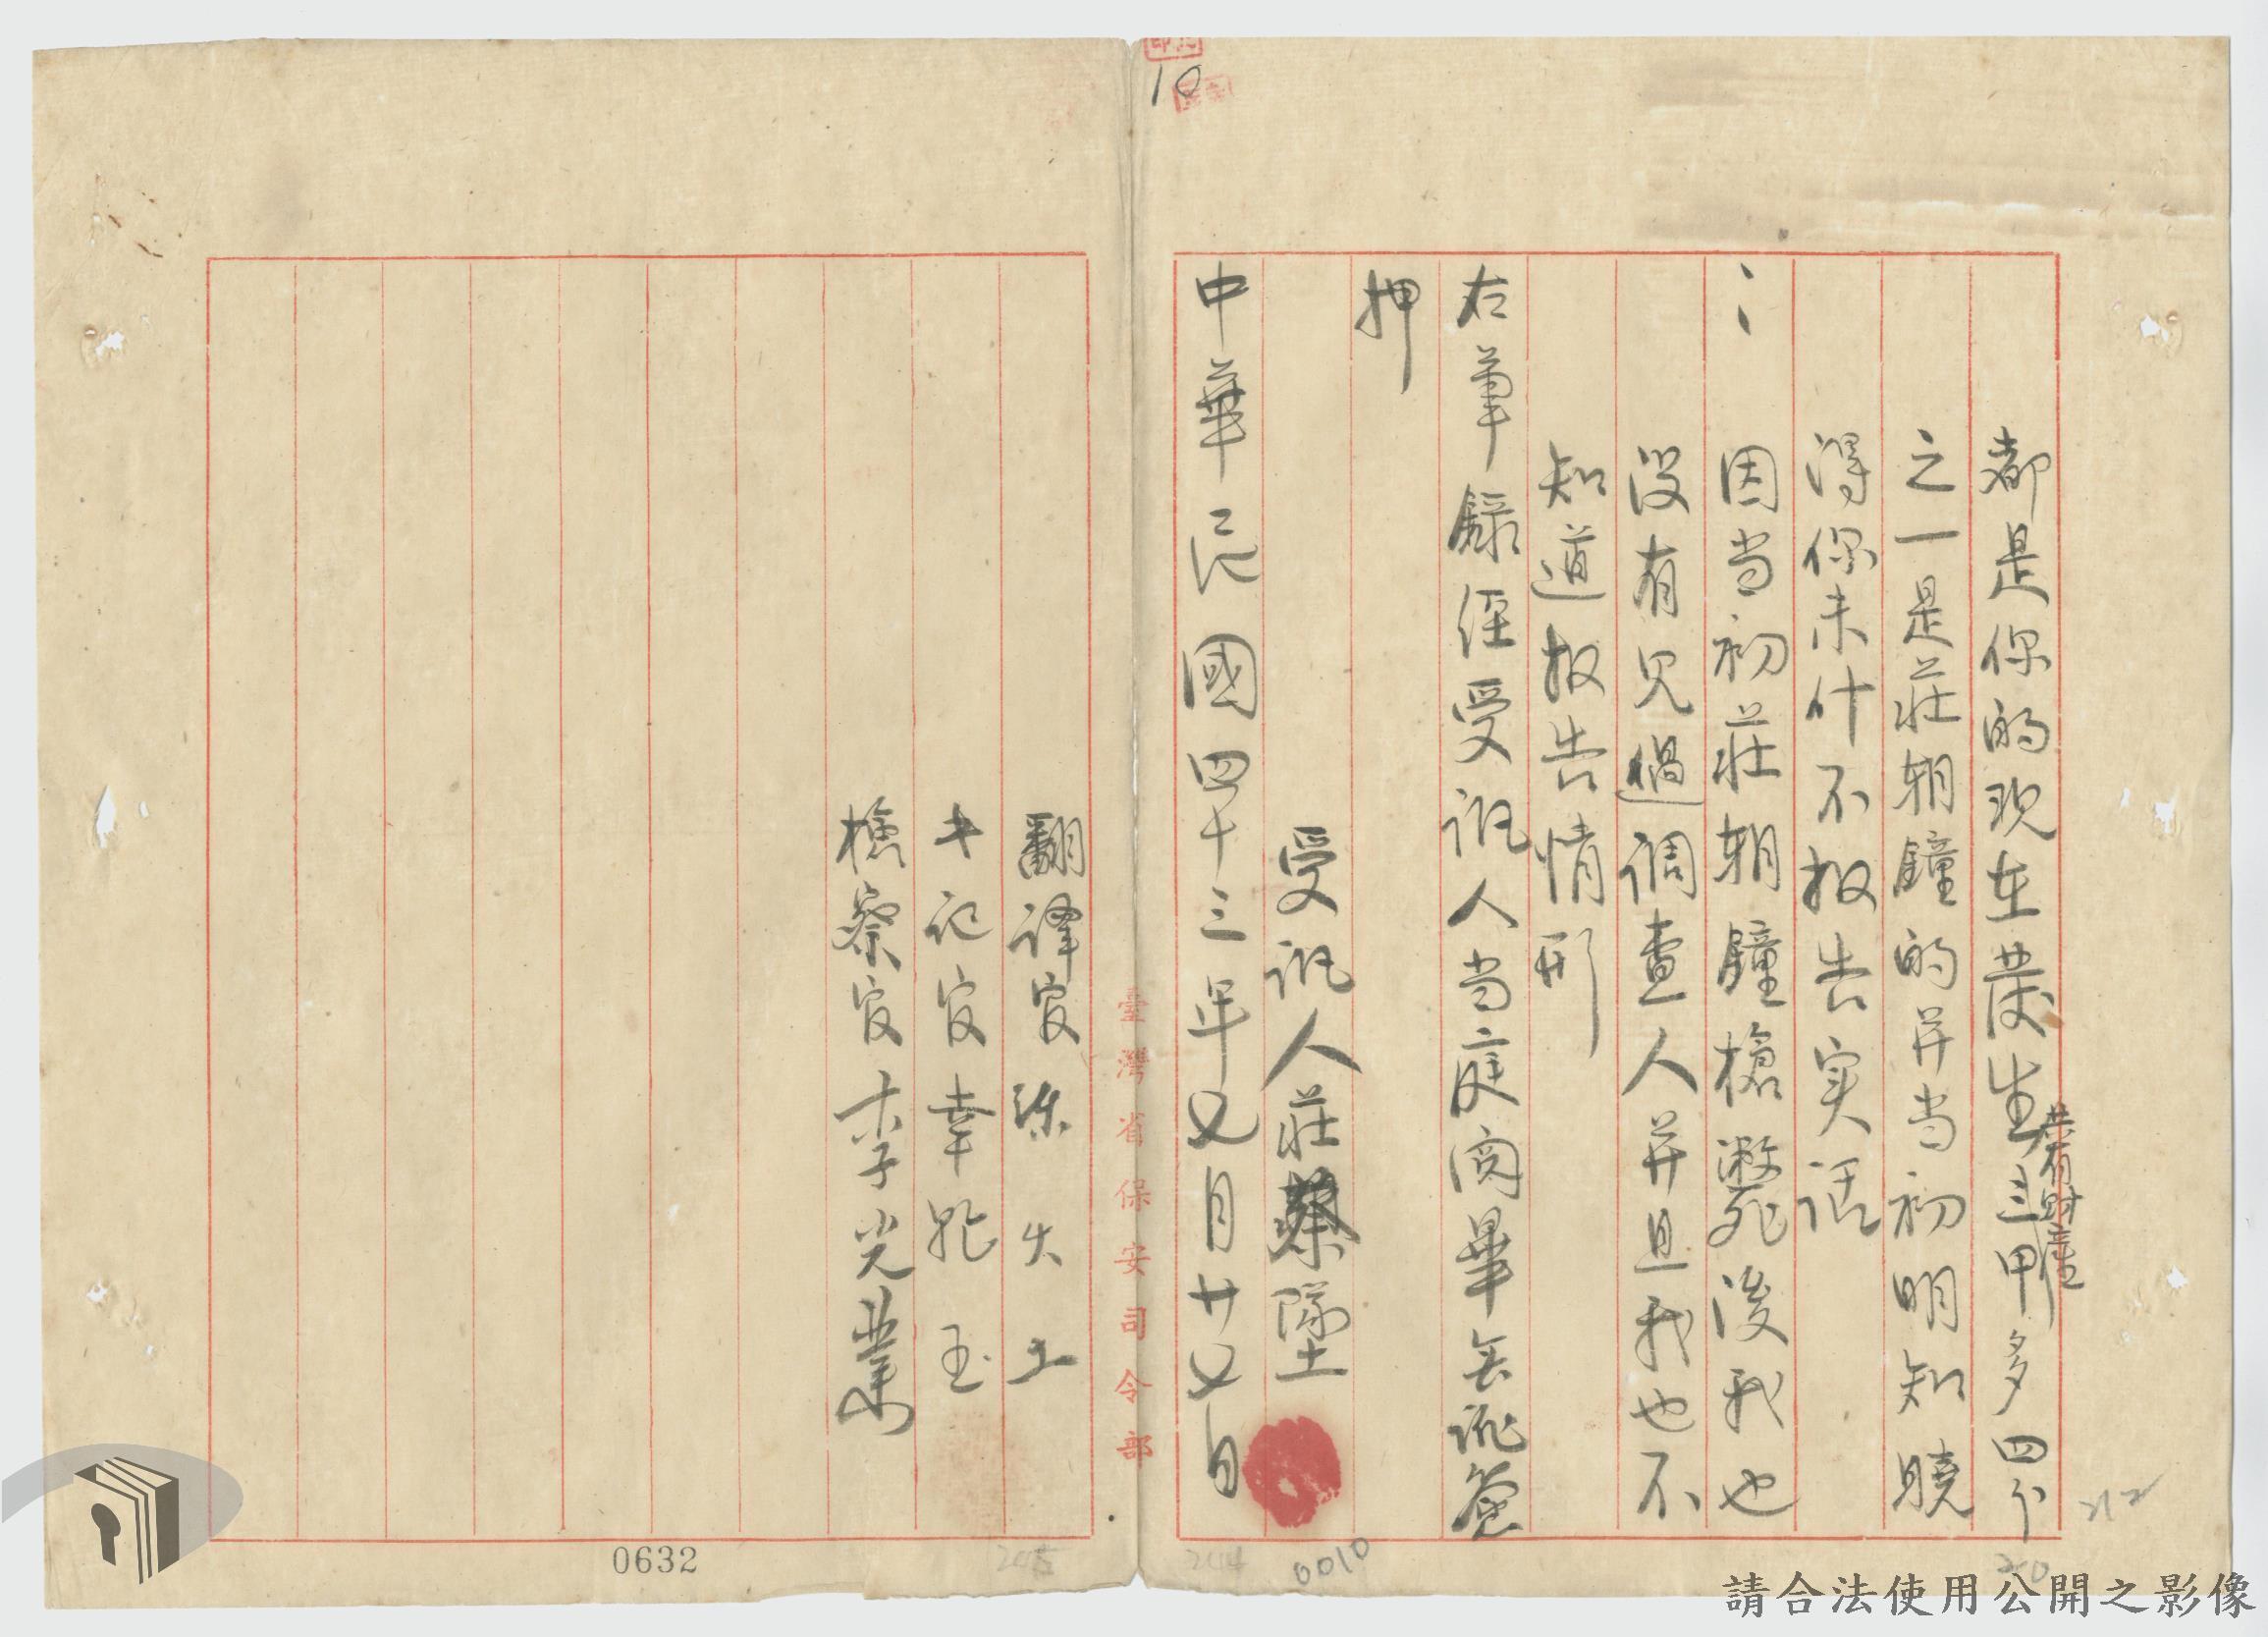 10
都是你的現在發生三甲多四分
共有財產
之一是莊朝鐘的并当初明知曉
得你未什不报告实话
:因当初莊朝鐘槍斃後我也
没有見過调查人并且我也不
知道报告情形
右筆録经受讯人当庭阅畢無讹簽
押
受讯人莊蔡墜
中華民國四十三年七月廿七日
臺灣省保安司令部
翻譯官
記官
檢察官李光業
0632
0010
212
請合法使用公開之影像